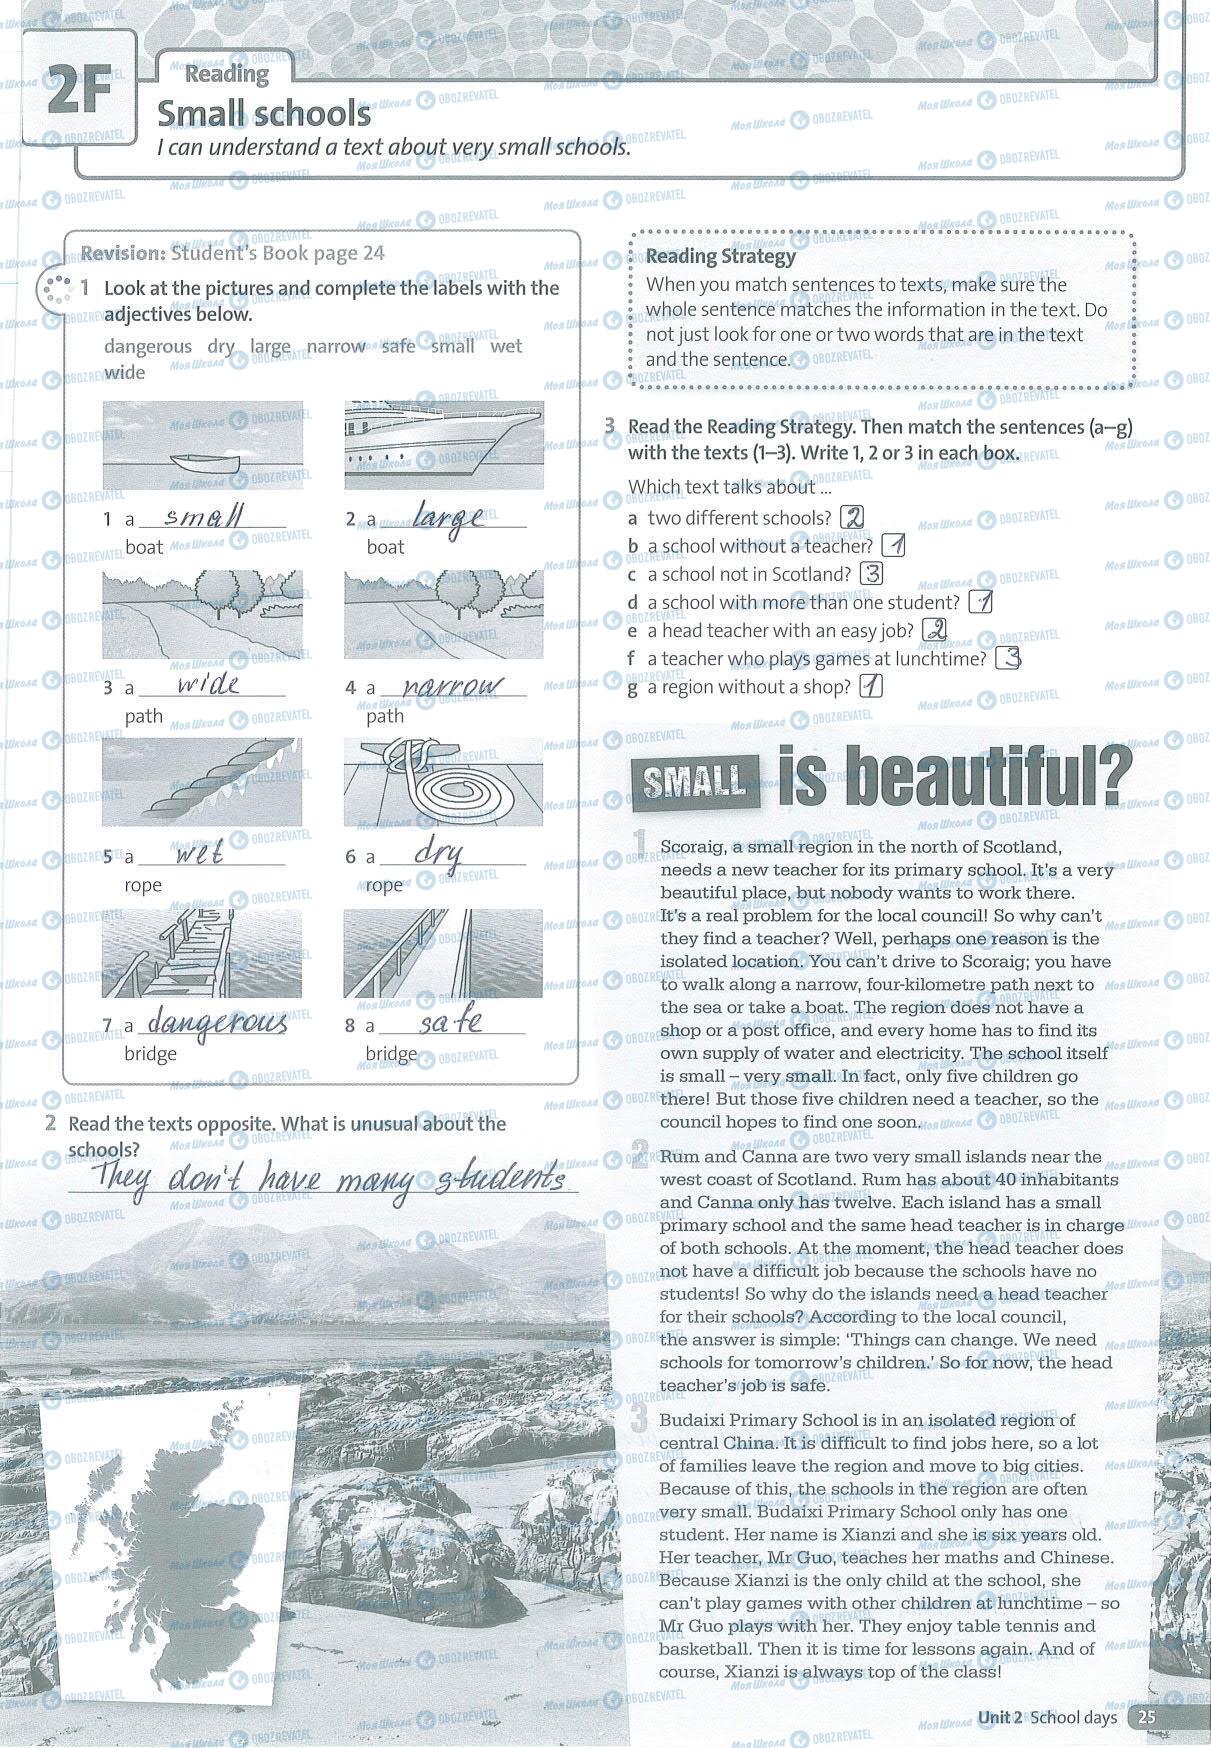 2F
Reading
Small schools
I can understand a text about very small schools.
Revision: Student's Book page 24
1 Look at the pictures and complete the labels with the
adjectives below.
dangerous dry large narrow safe small wet
wide
1 a small
boat
2 a large
boat
3 a wide
path
4 a narrow
path
5 a wet
rope
6 a dry
rope
7 a dangerous
bridge
8 a safe
bridge
2 Read the texts opposite. What is unusual about the
schools?
They don't have many students
Reading Strategy
When you match sentences to texts, make sure the
whole sentence matches the information in the text. Do
not just look for one or two words that are in the text
and the sentence.
3 Read the Reading Strategy. Then match the sentences (a–g)
with the texts (1–3). Write 1, 2 or 3 in each box.
Which text talks about ...
a two different schools? 2
b a school without a teacher? 1
c a school not in Scotland? 3
d a school with more than one student? 1
e a head teacher with an easy job? 2
f a teacher who plays games at lunchtime? 3
g a region without a shop? 1
SMALL is beautiful?
1 Scoraig, a small region in the north of Scotland,
needs a new teacher for its primary school. It's a very
beautiful place, but nobody wants to work there.
It's a real problem for the local council! So why can't
they find a teacher? Well, perhaps one reason is the
isolated location. You can't drive to Scoraig; you have
to walk along a narrow, four-kilometre path next to
the sea or take a boat. The region does not have a
shop or a post office, and every home has to find its
own supply of water and electricity. The school itself
is small – very small. In fact, only five children go
there! But those five children need a teacher, so the
council hopes to find one soon.
2 Rum and Canna are two very small islands near the
west coast of Scotland. Rum has about 40 inhabitants
and Canna only has twelve. Each island has a small
primary school and the same head teacher is in charge
of both schools. At the moment, the head teacher does
not have a difficult job because the schools have no
students! So why do the islands need a head teacher
for their schools? According to the local council,
the answer is simple: 'Things can change. We need
schools for tomorrow's children.' So for now, the head
teacher's job is safe.
3 Budaixi Primary School is in an isolated region of
central China. It is difficult to find jobs here, so a lot
of families leave the region and move to big cities.
Because of this, the schools in the region are often
very small. Budaixi Primary School only has one
student. Her name is Xianzi and she is six years old.
Her teacher, Mr Guo, teaches her maths and Chinese.
Because Xianzi is the only child at the school, she
can't play games with other children at lunchtime – so
Mr Guo plays with her. They enjoy table tennis and
basketball. Then it is time for lessons again. And of
course, Xianzi is always top of the class!
Unit 2 School days 25
Моя Школа OBOZREVATEL